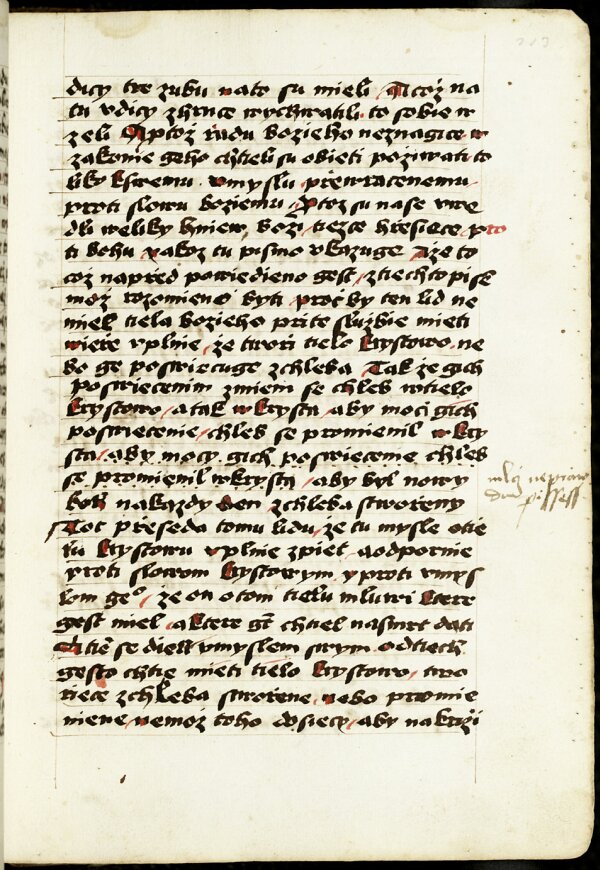 dicy tre zubu nato su mieli / A coz na
tu vdicy zhruce wychwatili to sobie w
zeli A ptoz radu bozieho neznagice w
zakonie geho chtieli su obieti poziwati to
liky kswemu vmyslu / przewracenemu
proti slowu boziemu / Ptoz su na se vwe
dli weliky hniew bozi / tiezce hrzesiece pro
ti bohu / yakoz tu pismo vkazuge A ze to
coz naprzed powiedieno gest / z tiechto pise
moz rozomieno byti / procz by ten lid ne
miel tiela bozieho przi te sluzbie mieti
wierze vplnie / ze tworzi tielo krystowo / ne
bo ge poswiecuge z chleba / Tak ze gich
poswiecenim zmieni se chleb w tielo
krystowo / a tak w krysta / aby moci gich
poswiecenie / chleb se promienil w kry
sta / aby mocy gich poswiecenie chleb
se promienil w krysta / aby byl nowy
boh na kazdy den z chleba stworzeny
Toc przeseda tomu lidu / ze tu mysle o tie
lu krystowu vplnie zpiet / a odpornie
proti slowom krystowym / y proti vmys
lom geo / ze on o tom tielu mluwi ktere
gest miel / a ktere gt chtiel na smrt dati
A ti se diell vmyslem swym od tiech
gesto chtie mieti tielo krystowo / two
rziece z chleba stworzene / nebo promie
niene / nemoz toho dosiecy / aby na krzizi